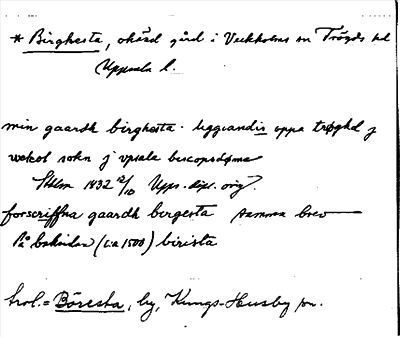 * Birghesta, okänd gård i Veckholms sn Trögds hd
Uppsala l.
min gaardh birghesta. liggiandis oppa trøghd j
wekol sokn j vpsala biscopsdøme
Sthlm 1432 12/10 Upps. dipl. orig.
forscriffna gaardh birgesta samma brev
På baksidan (ca 1500) birista
trol. = Böresta, by, Kungs-Husby sn.